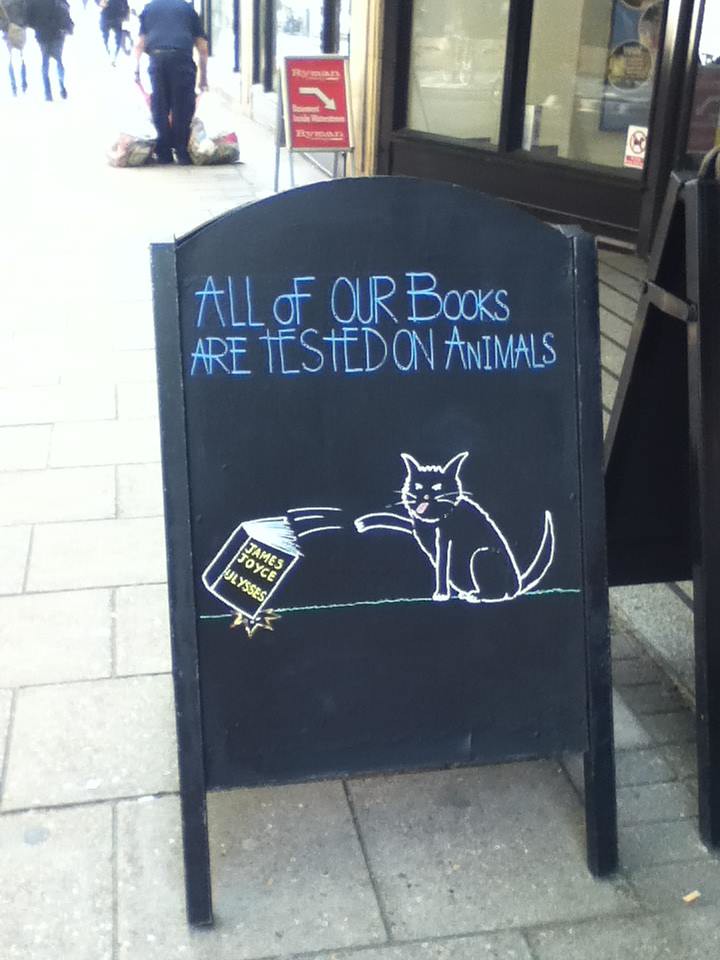 Ryman
Basement
Inside Waterstones
Ryman
ALL OF OUR BOOKS
ARE TESTED ON ANIMALS
JAMES
JOYCE
ULYSSES